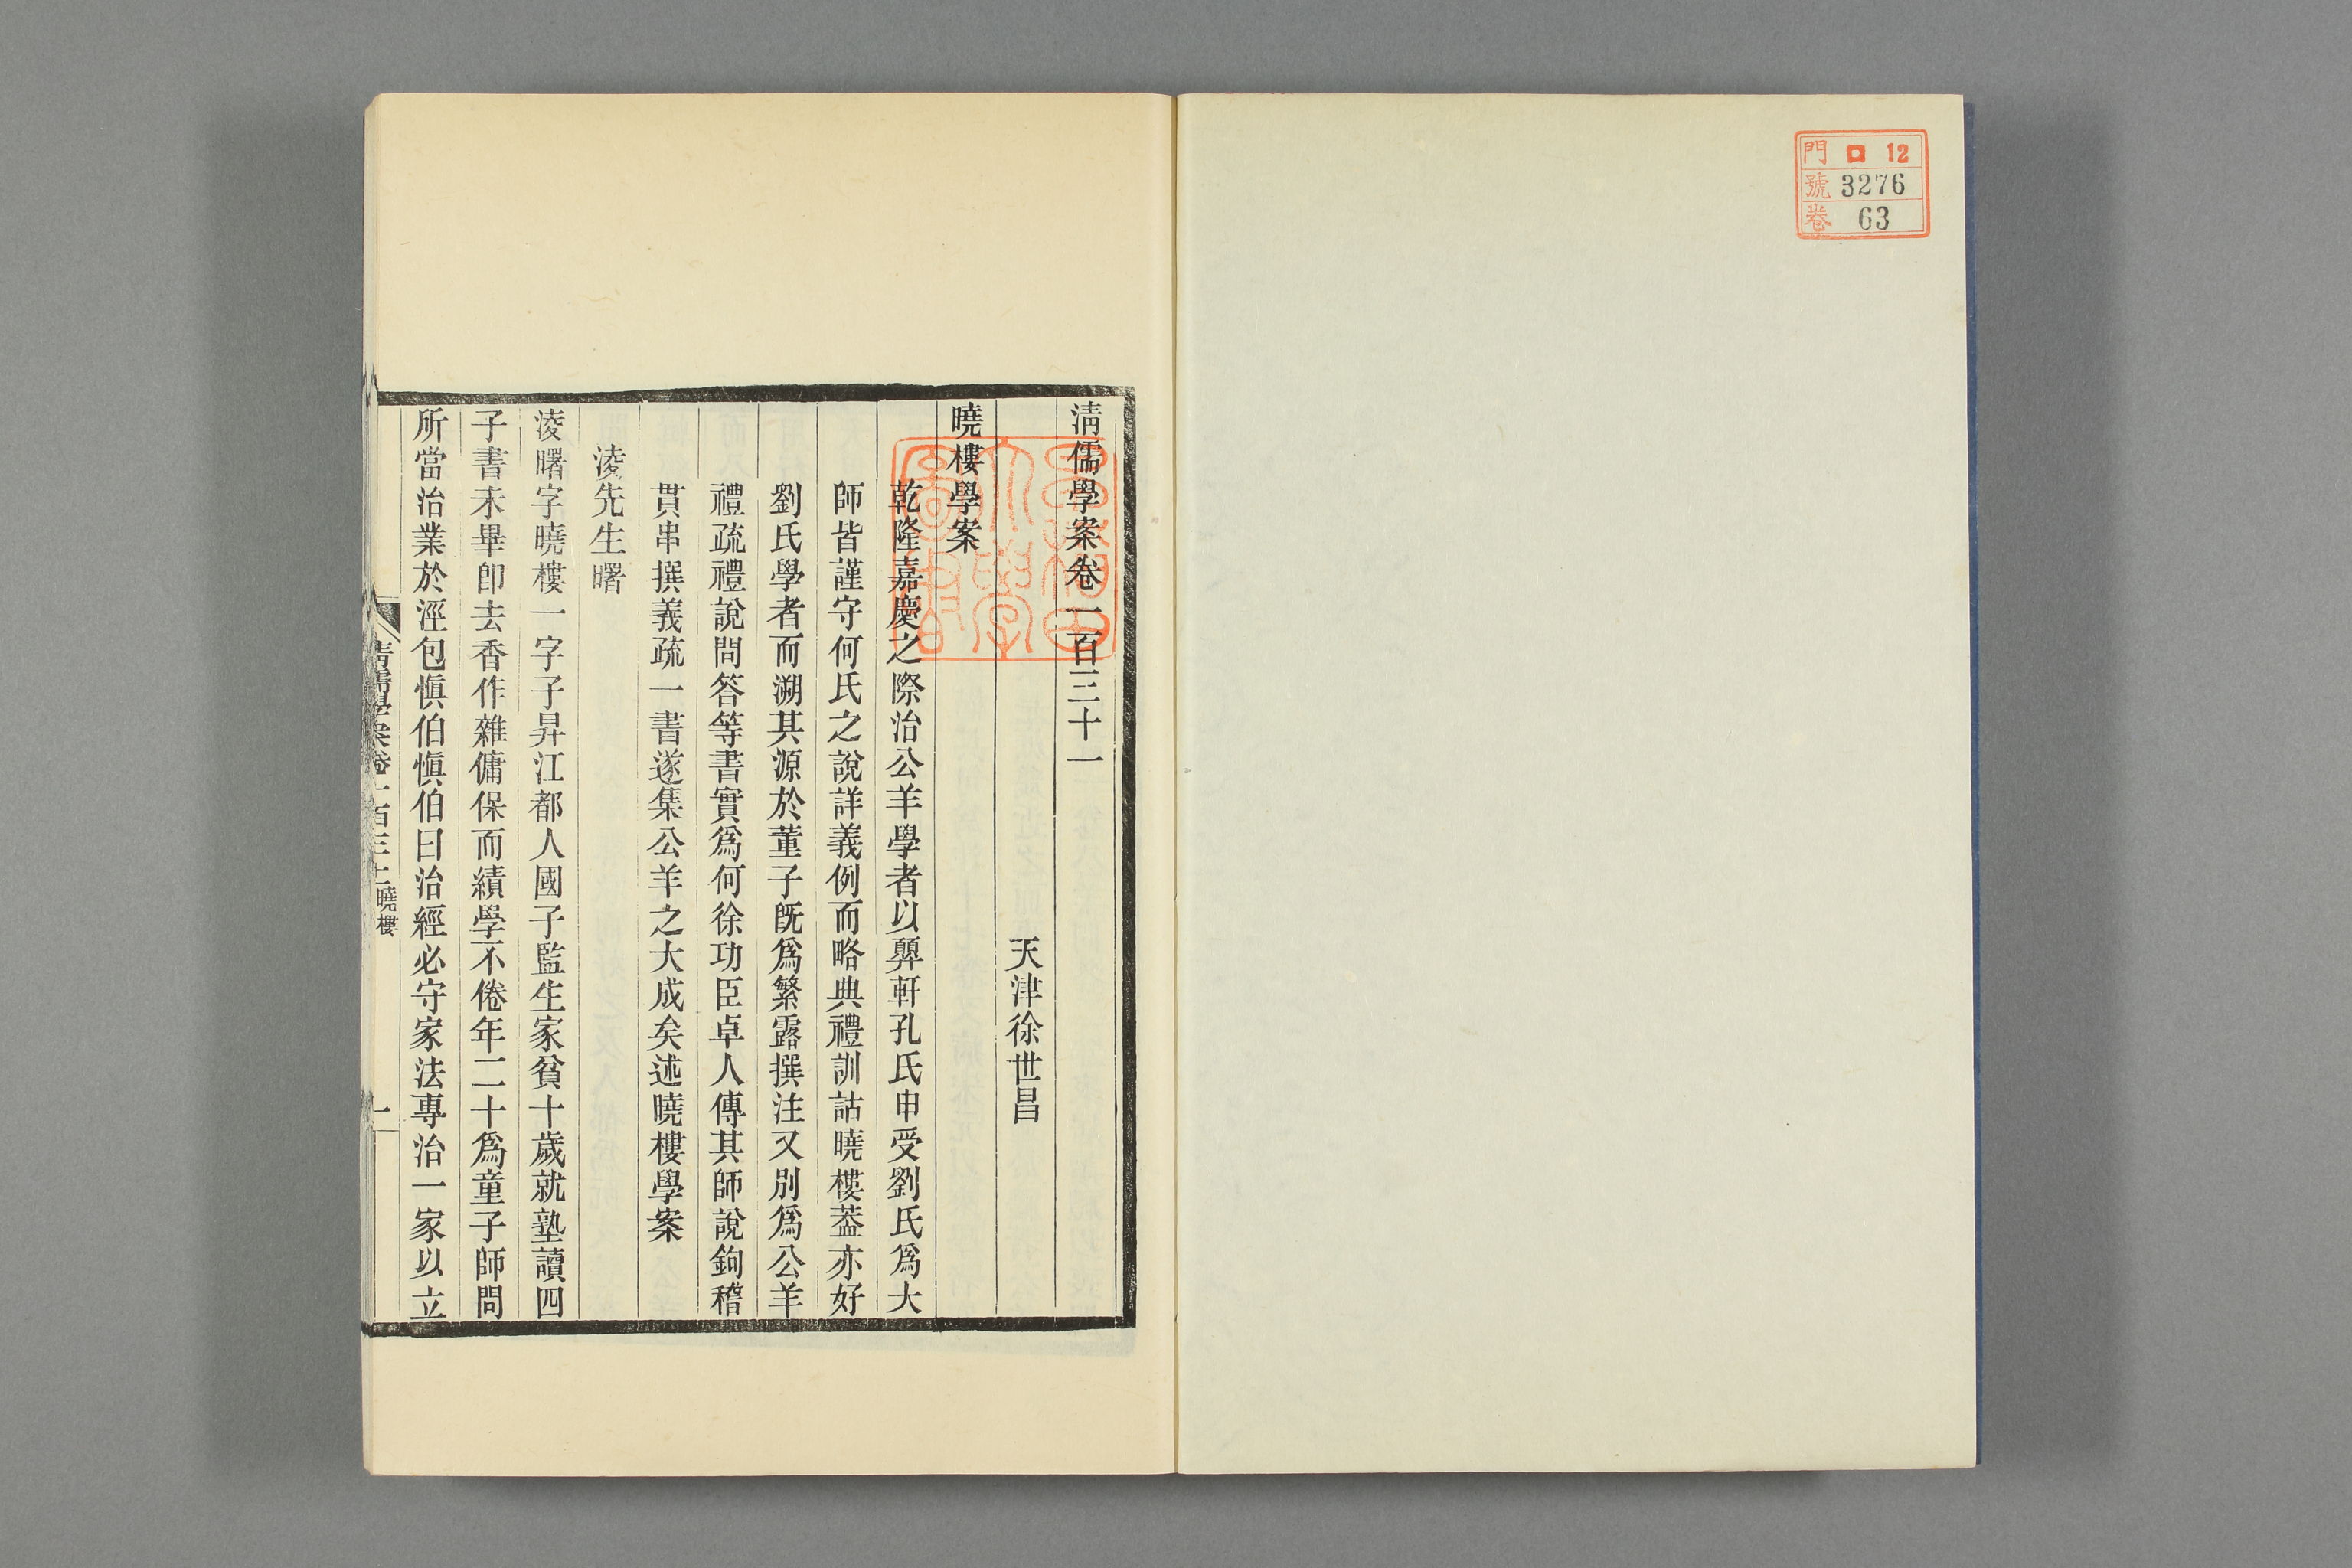 門 ロ 12
號 3276
卷 63
清儒學案卷一百三十一
天津徐世昌
曉樓學案
乾隆嘉慶之際治公羊學者以顨軒孔氏申受劉氏爲大
師皆謹守何氏之說詳義例而略典禮訓詁曉樓葢亦好
劉氏學者而溯其源於董子旣爲繁露撰注又別爲公羊
禮疏禮說問答等書實爲何徐功臣卓人傳其師說鉤稽
貫串撰義疏一書遂集公羊之大成矣述曉樓學案
淩先生曙
淩曙字曉樓一字子昇江都人國子監生家貧十歲就塾讀四
子書未畢卽去香作雜傭保而績學不倦年二十爲童子師問
所當治業於涇包愼伯愼伯曰治經必守家法專治一家以立
清儒學案卷一百三十一 曉樓
一